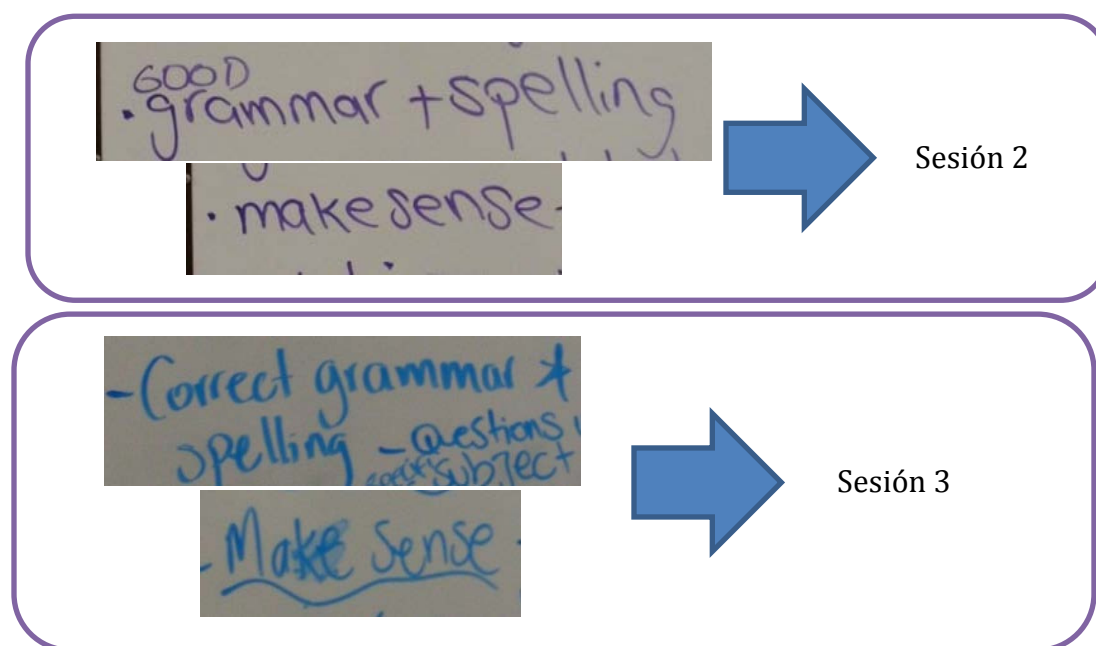 GOOD
· grammar + spelling
· make sense
Sesión 2
- Correct grammar *
spelling - Questions
subject
- Make Sense
Sesión 3